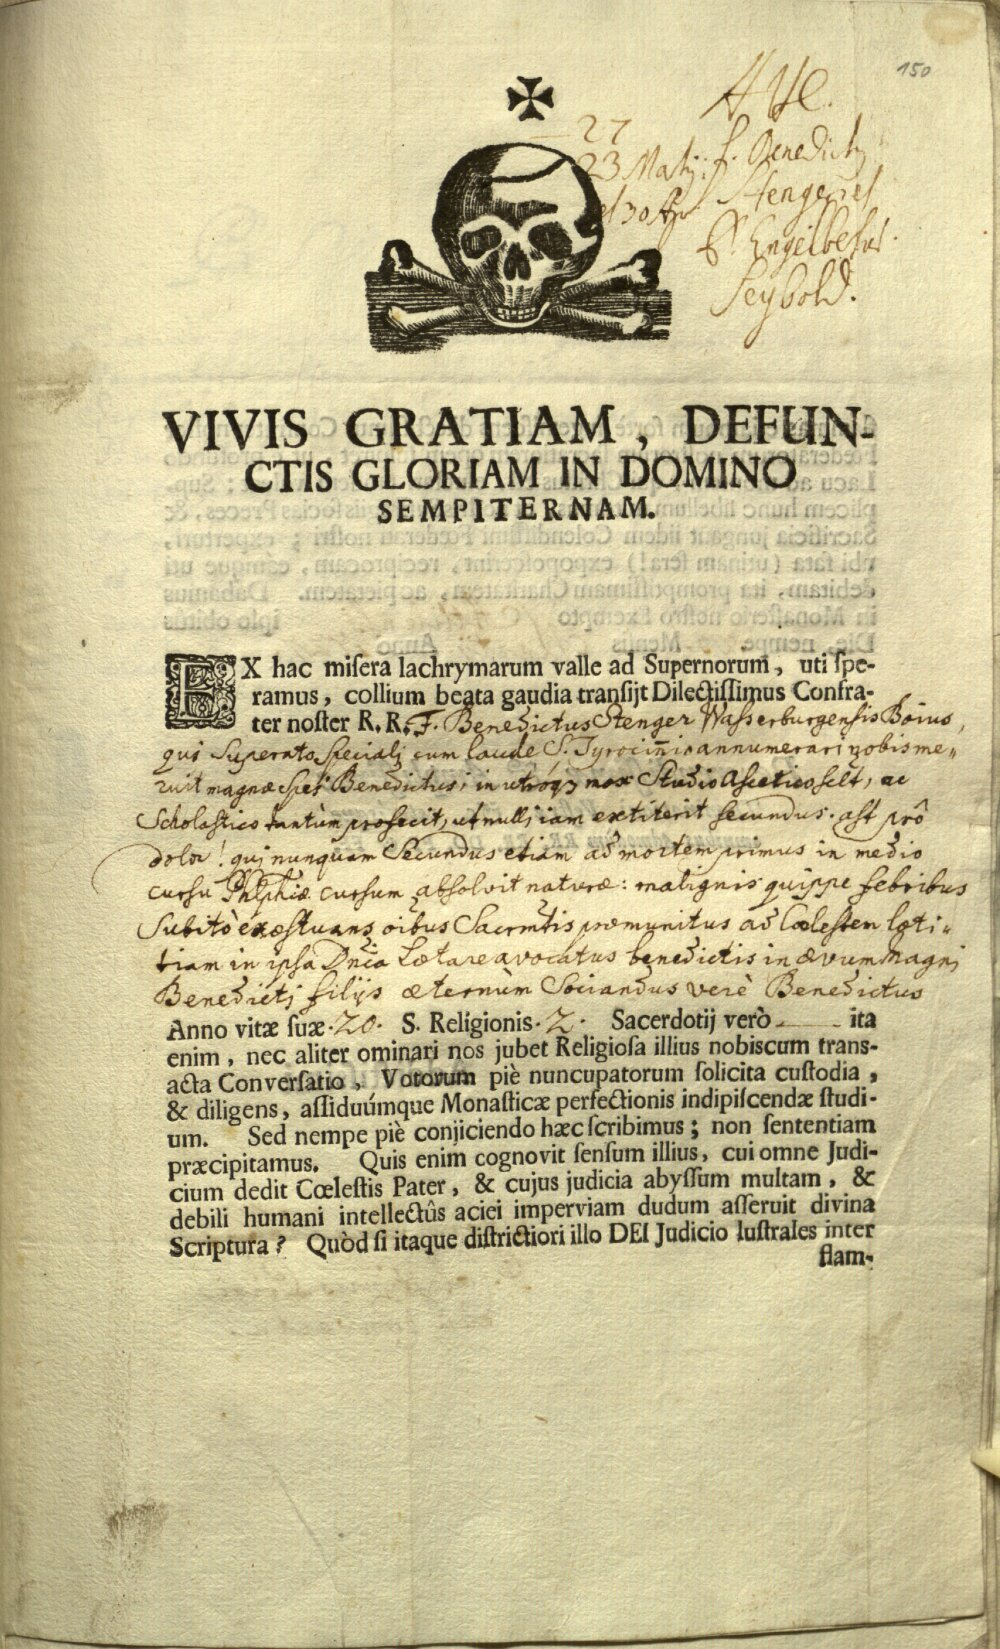 150
Ave.
27
23 Martij. f. Benedicty
et 30 Apr Stenger et
P. Engilbertus.
Seybold.
VIVIS GRATIAM, DEFUN-
CTIS GLORIAM IN DOMINO
SEMPITERNAM.
EX hac misera lachrymarum valle ad Supernorum, uti spe-
ramus, collium beata gaudia transijt Dilectissimus Confra-
ter noster R. R. F. Benedictus Stenger Wasserburgensis Boius,
qui Superato Speciali cum laude S. Tyrocinio annumerari nobis me-
ruit magnæ spei Benedictus; in utroq3 mox Studio Ascetico scilt, ac
Scholastico tantùm profecit, ut nulli iam extiterit secundus. ast prô
dolor! qui nunquam Secundus etiam ad mortem primus in medio
cursu Phlphiæ cursum absolvit naturæ: malignis quippe febribus
Subitò exæstuans oibus Sacrmtis præmunitus ad Cœlestem læti-
tiam in ipsa Dnica Lætare avocatus benedictis in ævum Magni
Benedicti filijs æternùm Sociandus verè Benedictus
Anno vitæ suæ. 20. S. Religionis. 2. Sacerdotij verò — ita
enim, nec aliter ominari nos jubet Religiosa illius nobiscum trans-
acta Conversatio, Votorum piè nuncupatorum solicita custodia,
& diligens, assiduúmque Monasticæ perfectionis indipiscendæ studi-
um. Sed nempe piè conjiciendo hæc scribimus; non sententiam
præcipitamus. Quis enim cognovit sensum illius, cui omne Judi-
cium dedit Cœlestis Pater, & cujus judicia abyssum multam, &
debili humani intellectûs aciei imperviam dudum asseruit divina
Scriptura? Quòd si itaque districtiori illo DEI Judicio lustrales inter
flam-